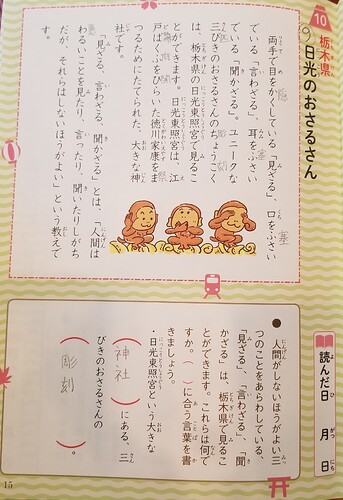 10 栃木県
日光のおさるさん
両手で目をかくしている「見ざる」、口をふさい
でいる「言わざる」、耳をふさい
でいる「聞かざる」。ユニークな
三びきのおさるさんのちょうこく
は、栃木県の日光東照宮で見るこ
とができます。日光東照宮は、江
戸ばくふをひらいた徳川家康をま
つるためにたてられた、大きな神
社です。
「見ざる、言わざる、聞かざる」とは、「人間は
わるいことを見たり、言ったり、聞いたりしがち
だが、それらはしないほうがよい」という教えで
す。
隠
塞
塞
読んだ日 月 日
● 人間がしないほうがよい三
つのことをあらわしている、
「見ざる」、「言わざる」、「聞
かざる」は、栃木県で見るこ
とができます。これらは何で
すか。( )に合う言葉を書
きましょう。
・日光東照宮という大きな
(神社)にある、三
びきのおさるさんの
(彫刻)。
15